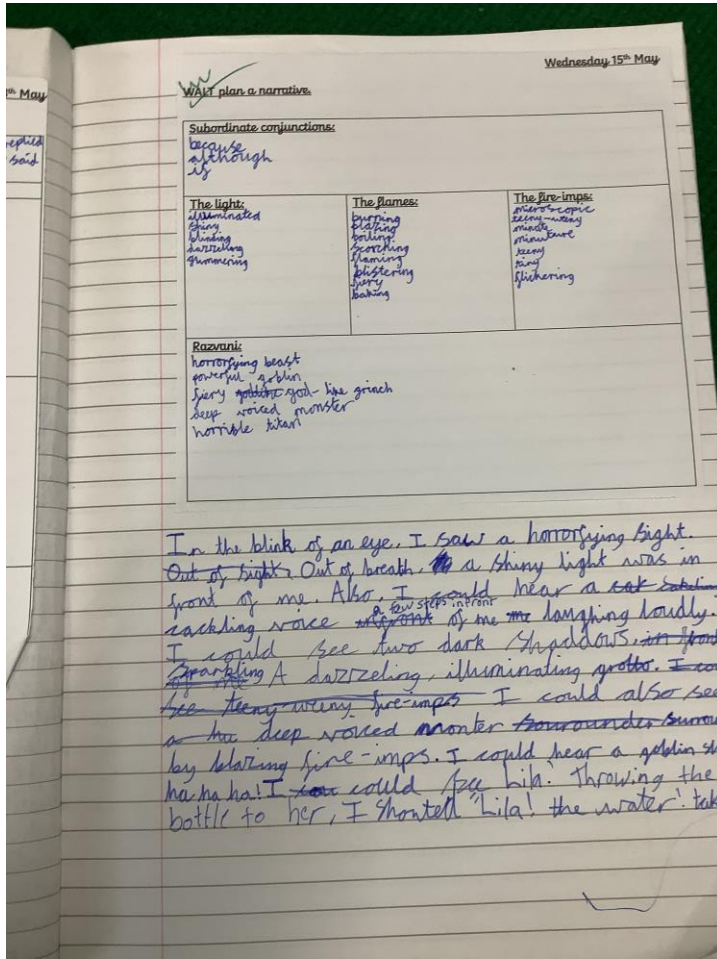 th May
replied
said
Wednesday 15th May
WALT plan a narrative.
Subordinate conjunctions:
because
although
if
The light:
illuminated
shiny
blinding
dazzeling
glimmering
The flames:
burning
blazing
boiling
scorching
flaming
blistering
fiery
baking
The fire-imps:
microscopic
teeny-weeny
minute
minuture
teeny
tiny
flickering
Razvani:
horrorfying beast
powerful goblin
fiery god-like grinch
deep voiced monster
horrible titan
In the blink of an eye, I saw a horrorfying sight.
Out of sight, Out of breath, a shiny light was in
front of me. Also, I could hear a
cackling voice a few steps infront of me me laughing loudly.
I could see two dark shaddows. in front
of me Sparkling A dazzeling, illuminating grotto. I cou
see teeny-weeny fire-imps I could also see
a hu deep voiced monter sourounder surrou
by blazing fire-imps. I could hear a goblin sh
ha ha ha! I could see Lila! Throwing the
bottle to her, I shouted "Lila! the water! tak